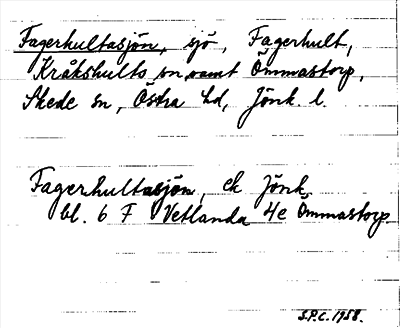 Fagerhultasjön, sjö, Fagerhult,
Kråkshults sn, samt Ömmastorp,
Skede sn, Östra hd, Jönk. l.
Fagerhultasjön, ek Jönk
bl. 6 F Vetlanda 4e Ömmastorp.
S.P.C. 1958.